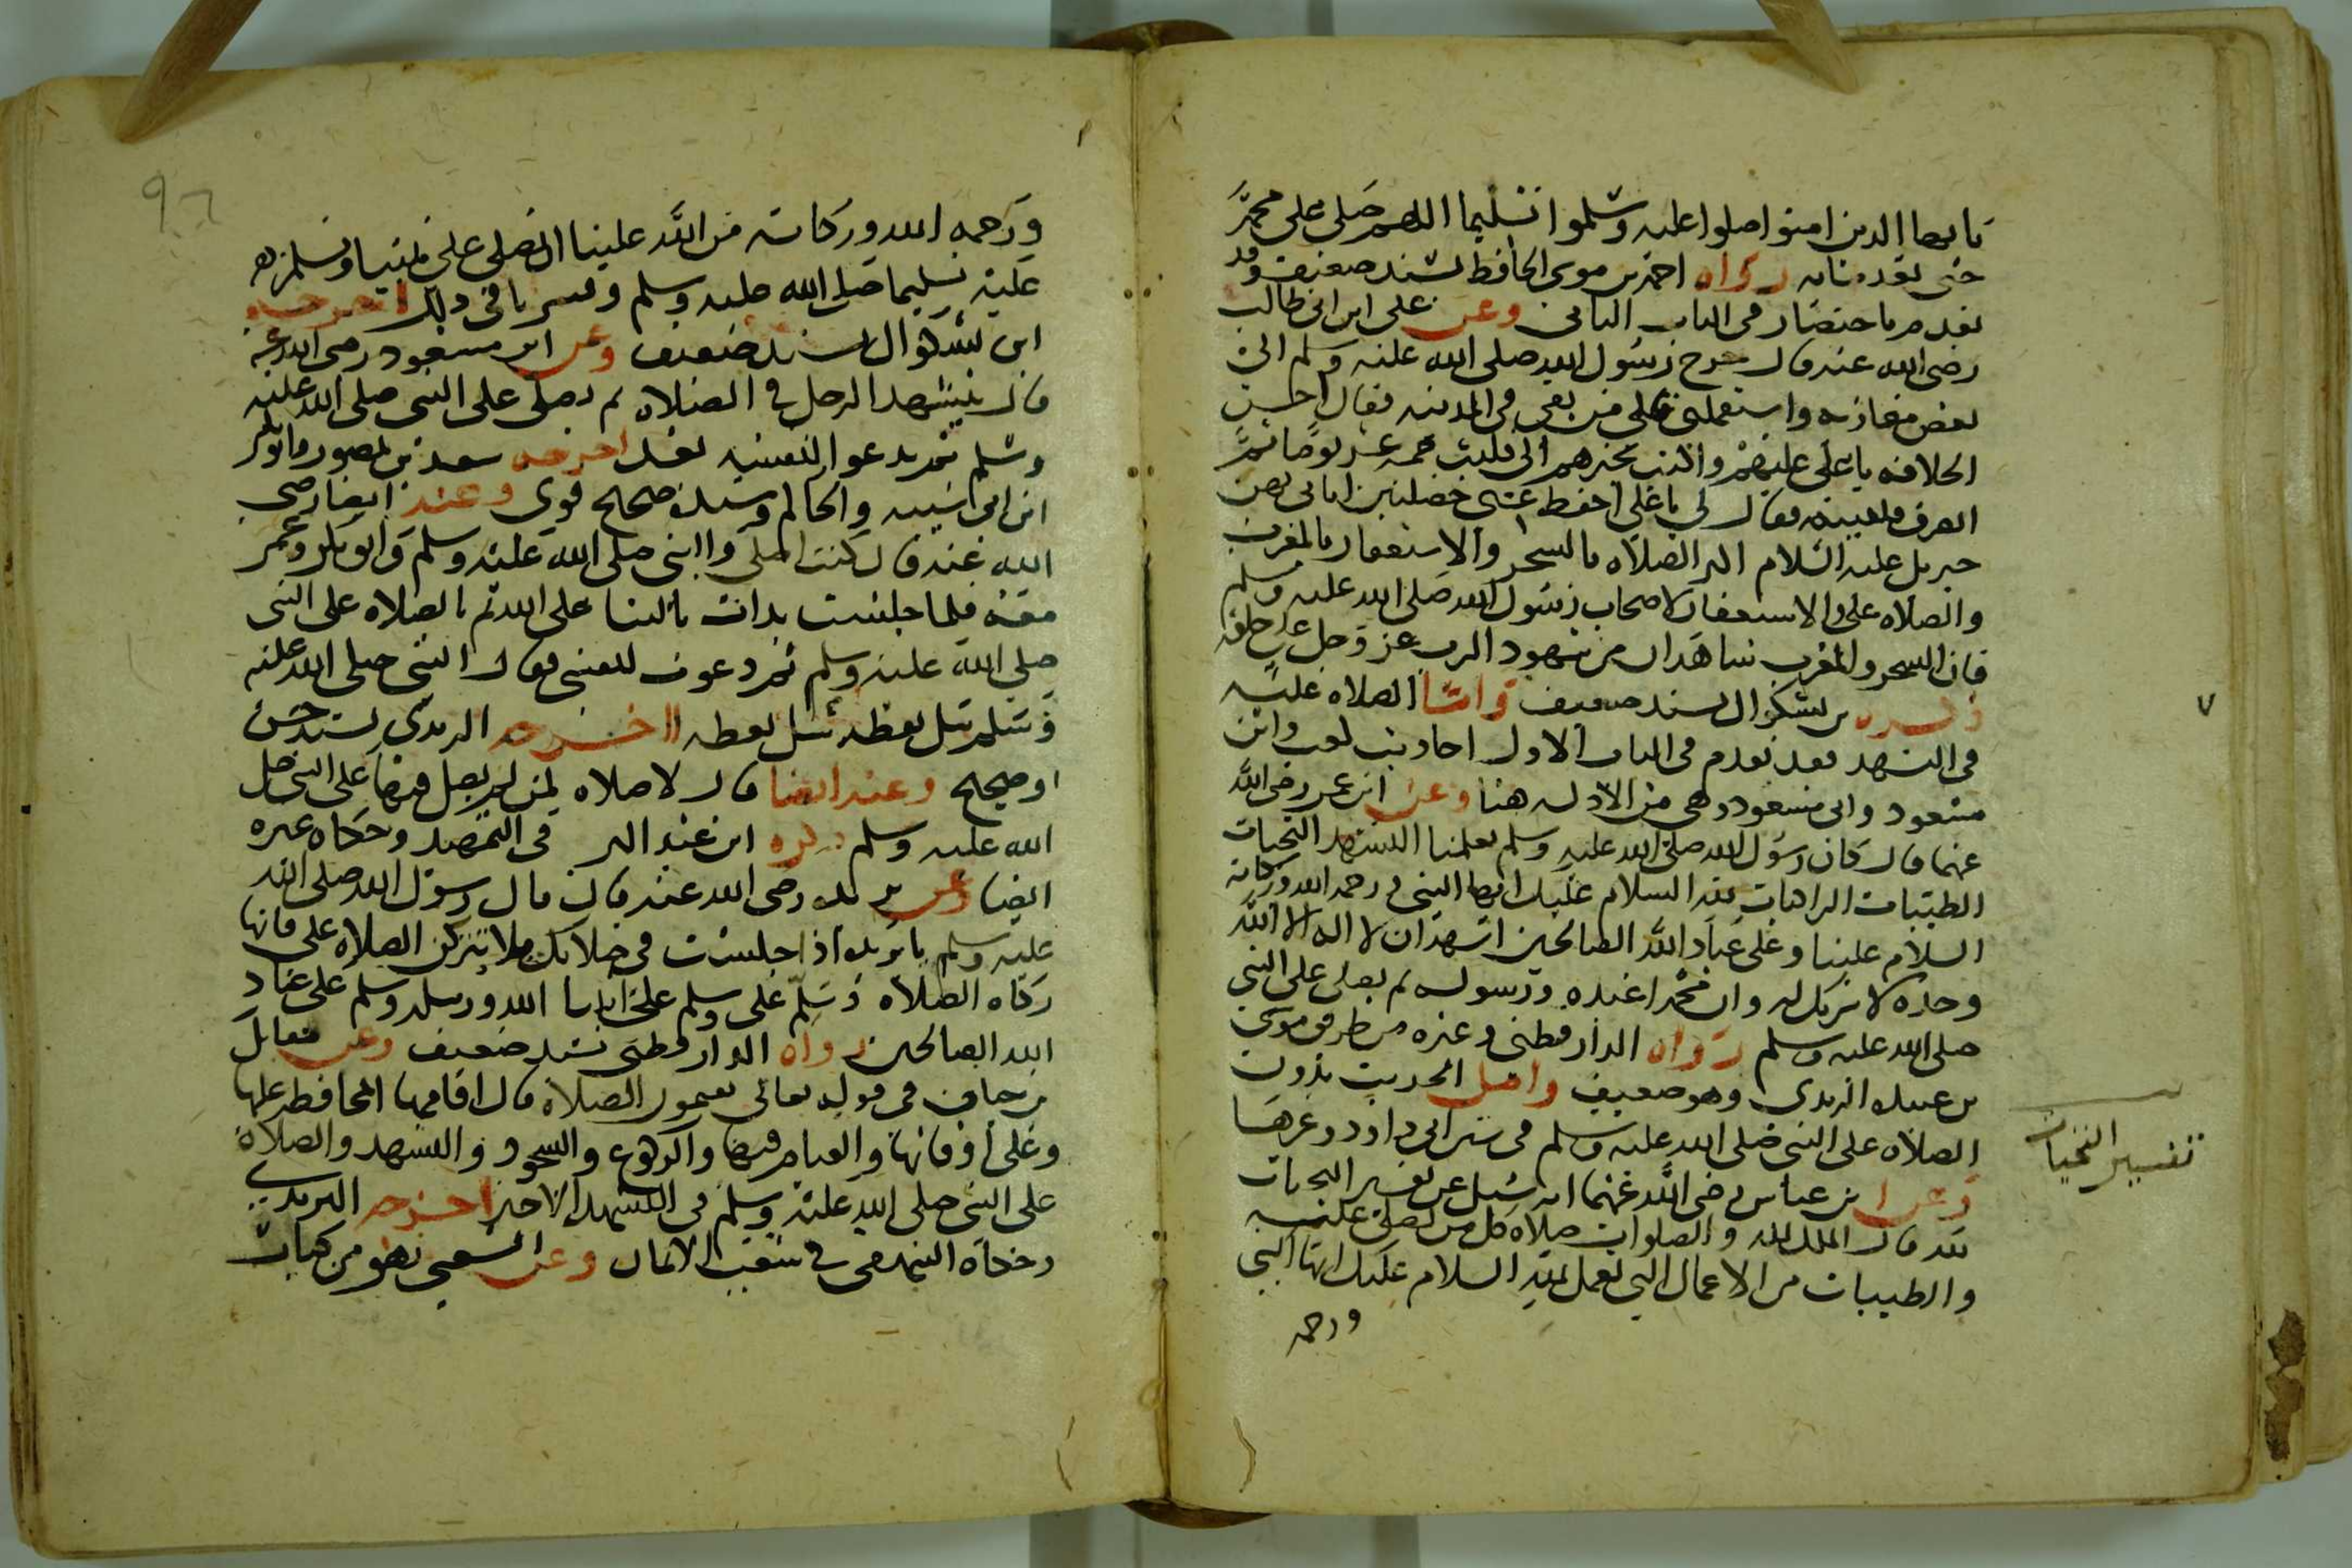 يايها الذين امنوا صلوا عليه وسلموا تسليما اللهم صلى على محمد
حتى تعد مائه رواه احمد بن موسى الحافظ بسند ضعيف وقد
تقدم باختصار فى الباب الثانى وعن على ابن ابى طالب
رضى الله عنه قال خرج رسول الله صلى الله عليه وسلم الى
بعض مغازيه واستعملنى على من بقى فى المدينه فقال احسن
الخلافه يا على عليهم واكتب بخبرهم الى فلبث خمسه عشر يوما ثم
انصرف فلقيته فقال لى يا على احفظ عنى خصلتين اتانى بهن
جبريل عليه السلام اكثر الصلاه بالسحر والاستغفار بالمغرب
والصلاه على والاستغفار لاصحاب رسول الله صلى الله عليه وسلم
فان السحر والمغرب شاهدان من شهود الرب عز وجل على خلقه
ذكره بن بشكوال بسند ضعيف واما الصلاه عليه
فى التشهد فقد تقدم فى الباب الاول احاديث كعب وابن
مسعود وابى مسعود وهى من الادله هنا وعن ابن عمر رضى الله
عنهما قال كان رسول الله صلى الله عليه وسلم يعلمنا التشهد التحيات
الطيبات الزاكيات لله السلام عليك ايها النبى ورحمه الله وبركاته
السلام علينا وعلى عباد الله الصالحين اشهد ان لا اله الا الله
وحده لا شريك له وان محمدا عبده ورسوله ثم يصلى على النبى
صلى الله عليه وسلم رواه الدارقطنى وغيره من طريق موسى
بن عبيده الزبدى وهو ضعيف واصل الحديث بدون
الصلاه على النبى صلى الله عليه وسلم فى سنن ابى داود وغيرها
وعن ابن عباس رضى الله عنهما انه سيل عن تفسير التحيات
لله قال الملك لله والصلوات صلاه كل من صلى عليه
والطيبات من الاعمال التى تعمل لله السلام عليك ايها النبى
ورحمه
تفسير التحيات
٧
٩٦
ورحمه الله وبركاته من الله علينا ان نصلى على نبينا ونسلم
عليه تسليما صلى الله عليه وسلم وفسر باقى ذلك اخرجه
ابن بشكوال بسند ضعيف وعن ابن مسعود رضى الله عنه
قال يتشهد الرجل فى الصلاه ثم يصلى على النبى صلى الله عليه
وسلم ثم يدعو لنفسه بعد اخرجه سعيد بن منصور وابو بكر
ابن ابى شيبه والحاكم وسنده صحيح قوى وعنه ايضا رضى
الله عنه قال كنت اصلى والنبى صلى الله عليه وسلم وابو بكر وعمر
معه فلما جلست بدات بالثنا على الله ثم بالصلاه على النبى
صلى الله عليه وسلم ثم دعوت لنفسى فقال النبى صلى الله عليه
وسلم سل تعطه سل تعطه اخرجه الترمذى بسند حسن
او صحيح وعنه ايضا قال لا صلاه لمن لم يصل فيها على النبى صلى
الله عليه وسلم ذكره ابن عبد البر فى التمهيد وحكاه غيره
ايضا وعن بريده رضى الله عنه قال قال رسول الله صلى الله
عليه وسلم يا بريده اذا جلست فى صلاتك فلا تتركن الصلاه على فانها
زكاه الصلاه وسلم على وسلم على انبيا الله ورسله وسلم على عباد
الله الصالحين رواه الدارقطنى بسند ضعيف وعن مقاتل
بن حيان فى قوله تعالى يقيمون الصلاه قال اقامتها المحافظه عليها
وعلى اوقاتها والقيام فيها والركوع والسجود والتشهد والصلاه
على النبى صلى الله عليه وسلم فى التشهد الاخير اخرجه
وحكاه البيهقى فى شعب الايمان وعن الشعبى وهو من كبار